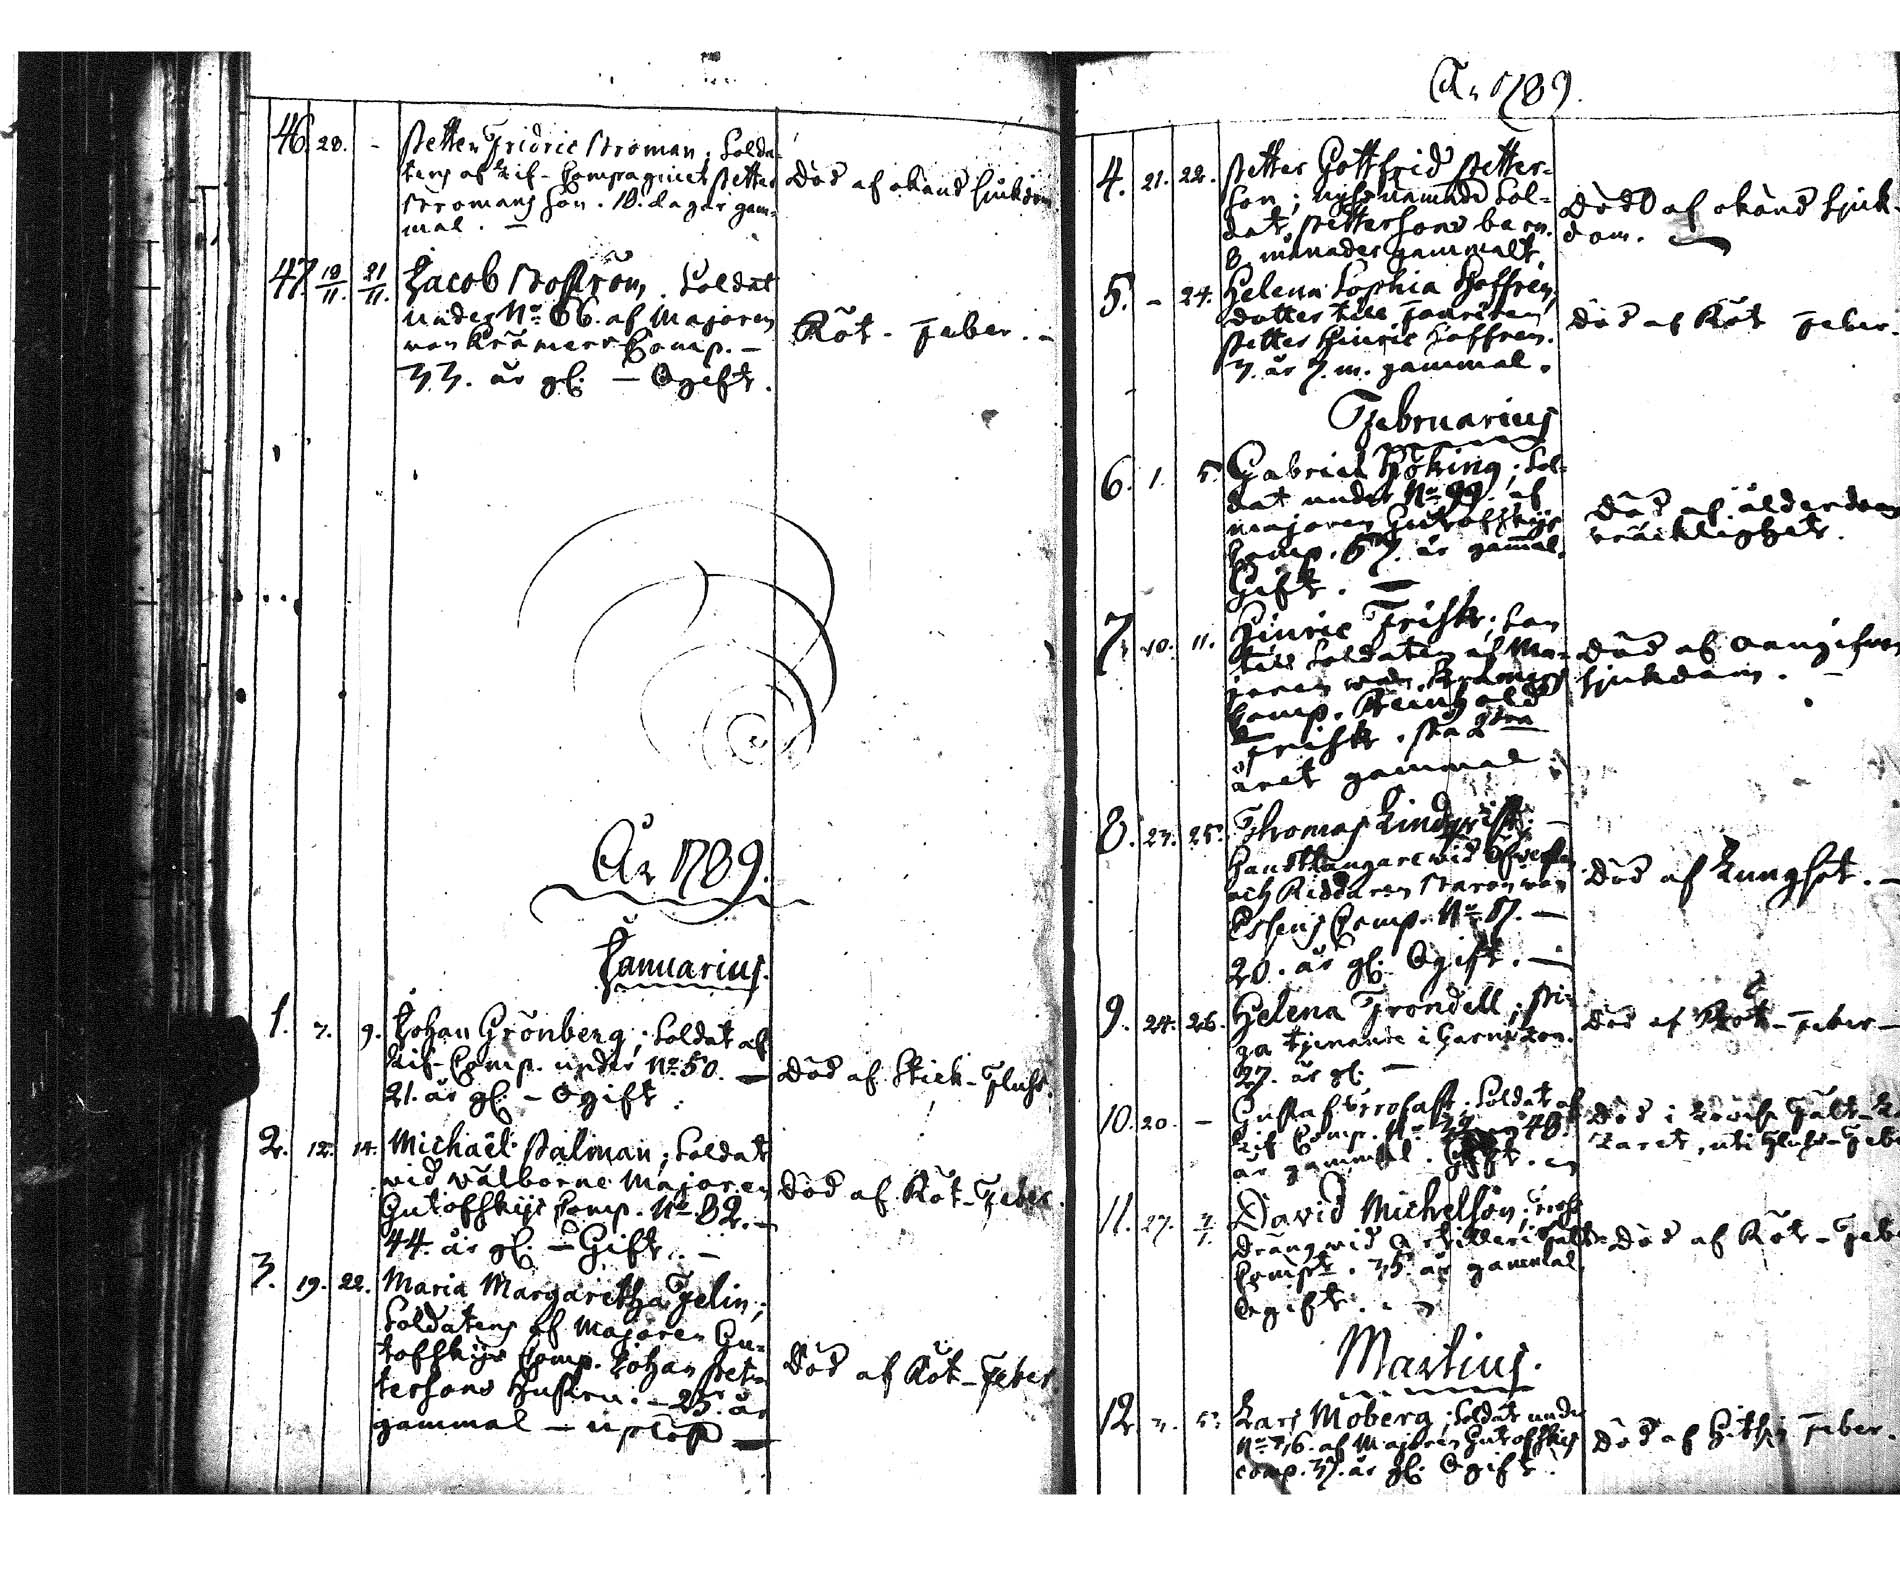 46. 28. - Petter Fridric Broman; Solda-
tens af Lif-Compagniet Petter
Bromans son. 18. dagar gam-
mal. —
Död af okänd sjukdom
47. 18/11. 21/11. Jacob Boström. Soldat
under No 66. af Majoren
von Kræmers Comp. —
33. år gl: — Ogift.
Röt-Feber. -
År 1789.
Januarius.
1. 7. 9. Johan Grönberg; Soldat af
Lif-Comp. under No 50. —
21. år gl: - Ogift.
Död af Stick-Fluss.
2. 12. 14. Michaël Palman; Soldat
vid Välborne Majoren
Gutofskijs Comp. No 82. -
44. år gl: — Gift. -
Död af Röt-Feber.
3. 19. 22. Maria Margaretha Felin;
Soldatens af Majoren Gu-
tofskijs Comp. Johan Pet-
terssons Hustru. - 25. år
gammal —
Död af Röt-Feber.
År 1789.
4. 21. 22. Petter Gottfrid Petter-
son; nyssnämnde Sol-
dat Petterssons barn.
8 månader gammalt.
Död af okänd sjuk-
dom.
5. - 24. Helena Sophia Hoffren,
dotter till
Petter Hinric Hoffren.
3. år 7. m. gammal.
Död af Röt Feber.
Februarius
6. 1. 5. Gabriel Höking; Sol-
dat under No 99. af
Majoren Gutofskijs
Comp. 57. år gammal.
Gift. —
Död af ålderdoms
bräcklighet.
7. 10. 11. Hinric Frisk; Son
till Soldaten af Ma-
joren von Kræmers
Comp. Reinhold
Frisk. på 2dra
året gammal.
Död af oangifven
sjukdom. -
8. 23. 25. Thomas Lindqvist; -
Handtlangare vid Öfversten
och Riddaren Baron von
Essens Comp. No 87. —
20. år gl: Ogift. —
Död af Lungsot. —
9. 24. 26. Helena Frondell; Pi-
ga tjenande i Garnizon.
27. år gl: —
Död af Röt-Feber -
10. 20. - Gustaf; Soldat af
Lif Comp. No 48.
år gammal.
Död i Fält-La-
zaret, uti Fluss-Feber
11. 27. David Michelsön; Tross
dräng vid Artilleri Fält-
Comp:t. 35. år gammal.
Ogift.
Död af Röt-Feber
Martius.
12. 3. 5. Lars Moberg; Soldat under
No 76. af Majoren Gutofskijs
Comp. 37. år gl: Ogift.
Död af Hitsig Feber.